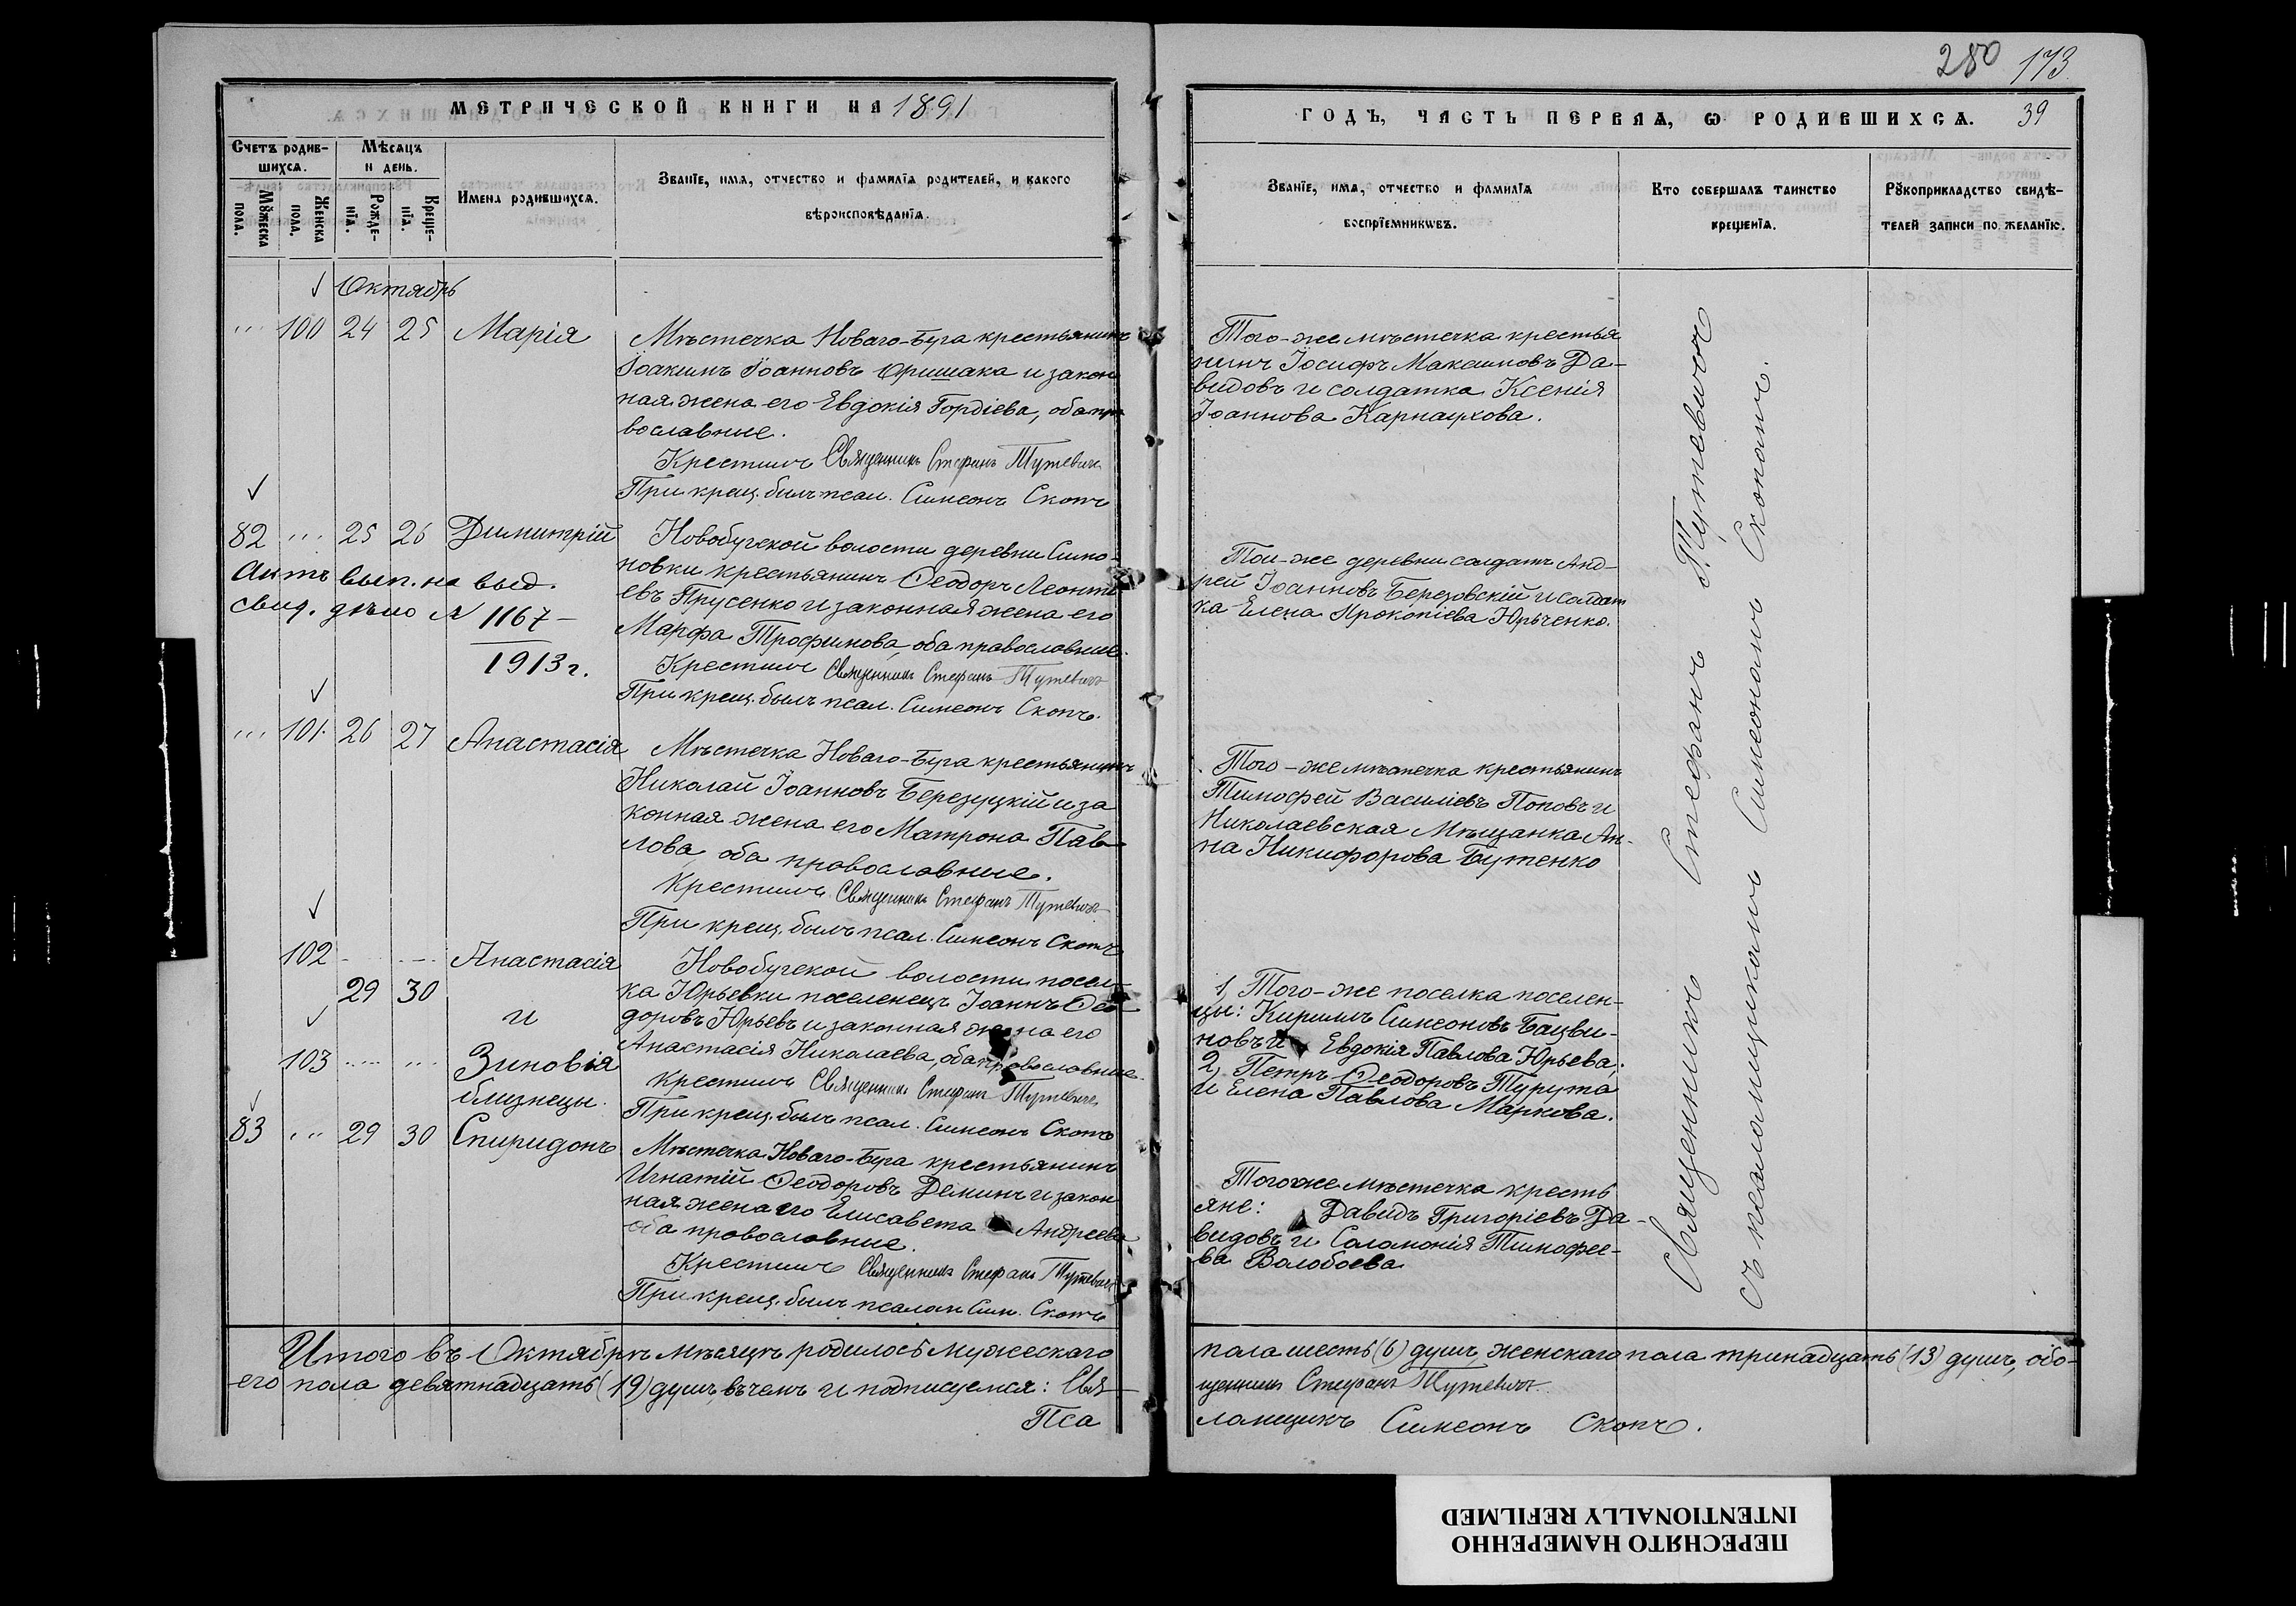 280 173
МЕТРИЧЕСКОЙ КНИГИ НА 1891
ГОДЪ, ЧАСТЬ ПЕРВАЯ, Ѡ РОДИВШИХСѦ. 39
Счетъ родив-
шихсѧ.
Мѣсѧцъ
и день.
Мꙋжеска
пола.
Женска
пола.
Рожде-
нїѧ.
Креще-
нїѧ.
Имена родившихсѧ.
Званїе, имѧ, отчество и фамилїѧ родителей, и какого
вѣроисповѣданїѧ.
Званїе, имѧ, отчество и фамилїѧ
воспрїемникѡвъ.
Кто совершалъ таинство
крещенїѧ.
Рꙋкоприкладство свидѣ-
телей записи по желанїю.
Октябрь
100 24 25 Марія
Мѣстечка Новаго-Буга крестьянинъ
Іоакимъ Іоанновъ Оришака и закон
ная жена его Евдокія Гордіева, оба пра
вославные.
Крестилъ Священникъ Стефанъ Тутевичъ
При крещ. былъ псал. Симеонъ Скопъ
Того-же мѣстечка крестья
нинъ Іосифъ Максимовъ Да-
видовъ и солдатка Ксенія
Іоаннова Карнаухова.
82 25 26 Димитрій
Актъ вып. на выд.
свид. дѣло N 1167
1913 г.
Новобугской волости деревни Симо-
новки крестьянинъ Ѳеодоръ Леонть
евъ Прусенко и законная жена его
Марфа Трофимова, оба православные.
Крестилъ Священникъ Стефанъ Тутевичъ
При крещ. былъ псал. Симеонъ Скопъ.
Той-же деревни солдатъ Анд-
рей Іоанновъ Березовскій и солдат
ка Елена Прокопіева Юрьченко.
101 26 27 Анастасія
Мѣстечка Новаго-Буга крестьянинъ
Николай Іоанновъ Березуцкій и за
конная жена его Матрона Пав-
лова, оба православные.
Крестилъ Священникъ Стефанъ Тутевичъ
При крещ. былъ псал. Симеонъ Скопъ
Того-же мѣстечка крестьянинъ
Тимофей Василіевъ Поповъ и
Николаевская Мѣщанка Ан-
на Никифорова Бутенко
102 Анастасія
29 30
и
103 Зиновія
близнецы.
Новобугской волости посел-
ка Юрьевки поселенецъ Іоаннъ Ѳео
доровъ Юрьевъ и законная жена его
Анастасія Николаева, оба православные.
Крестилъ Священникъ Стефанъ Тутевичъ
При крещ. былъ псал. Симеонъ Скопъ
1, Того-же поселка поселен-
цы: Кириллъ Симеоновъ Бацви-
новъ и Евдокія Павлова Юрьева;
2, Петръ Ѳеодоровъ Турута
и Елена Павлова Маркова.
83 29 30 Спиридонъ
Мѣстечка Новаго-Буга крестьянинъ
Игнатій Ѳеодоровъ Деминъ и закон
ная жена его Елисавета Андреева
оба православные.
Крестилъ Священникъ Стефанъ Тутевичъ
При крещ. былъ псалом Сим. Скопъ
Того же мѣстечка кресть
яне: Давидъ Григоріевъ Да-
видовъ и Соломонія Тимофее-
ва Волобоева
Священникъ Стефанъ Тутевичъ
съ псаломщикомъ Симеономъ Скопомъ.
Итого въ Октябрѣ мѣсяцѣ родилось мужескаго
пола шесть (6) душъ, женскаго пола тринадцать (13) душъ, обо-
его пола девятнадцать (19) душъ, въ чемъ и подписуемся: Свя-
щенникъ Стефанъ Тутевичъ
Пса
ломщикъ Симеонъ Скопъ.
ПЕРЕСНЯТО НАМЕРЕННО
INTENTIONALLY REFILMED